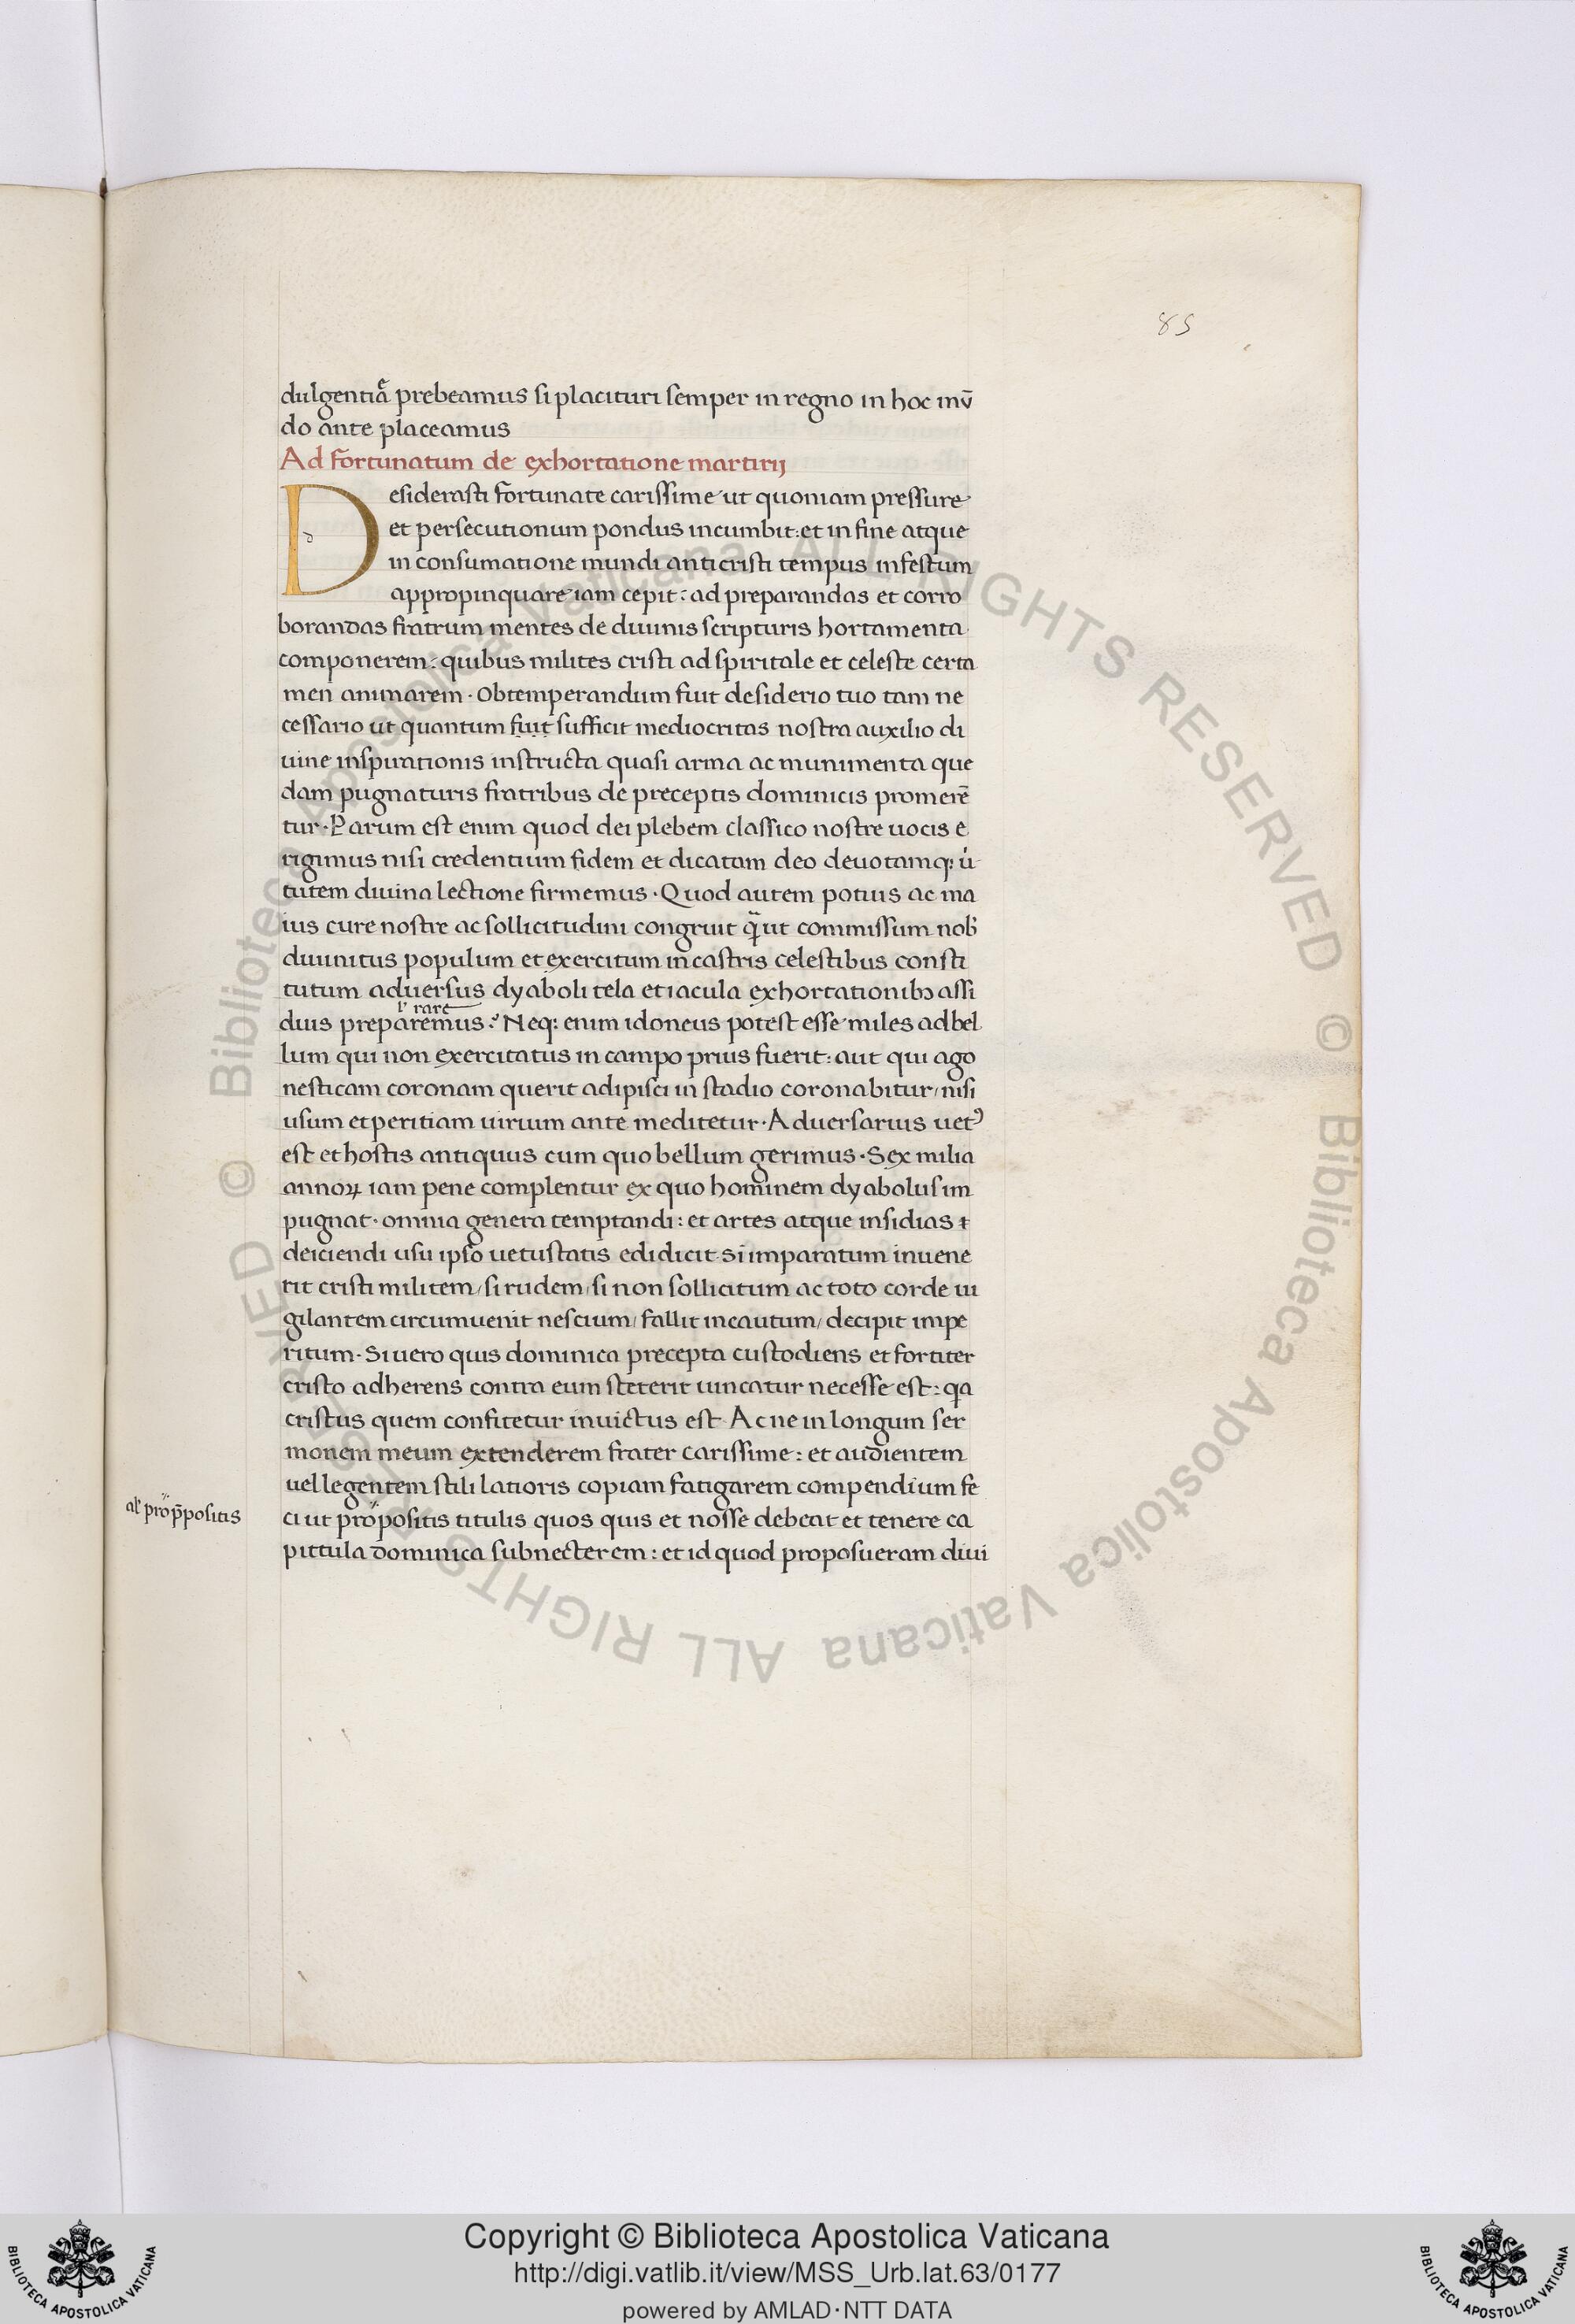 85
dulgentiā prebeamus si placituri semper in regno in hoc mū
do ante placeamus
Ad fortunatum de exhortatione martirij
Desiderasti fortunate carissime ut quoniam pressure
et persecutionum pondus incumbit: et in fine atque
in consumatione mundi anticristi tempus infestum
appropinquare iam cepit: ad preparandas et corro
borandas fratrum mentes de diuinis scripturis hortamenta
componerem: quibus milites cristi ad spiritale et celeste certa
men animarem · Obtemperandum fuit desiderio tuo tam ne
cessario ut quantum fuit sufficit mediocritas nostra auxilio di
uine inspirationis instructa quasi arma ac munimenta que
dam pugnaturis fratribus de preceptis dominicis promerē
tur · Parum est enim quod dei plebem classico nostre uocis e
rigimus nisi credentium fidem et dicatam deo deuotamq: uir
tutem diuina lectione firmemus · Quod autem potius ac ma
ius cure nostre ac sollicitudini congruit q̃ ut commissum nob̄
diuinitus populum et exercitum in castris celestibus consti
tutum aduersus dyaboli tela et iacula exhortationibꝫ assi
l' rare
duis preparemus? Neq: enim idoneus potest esse miles ad bel
lum qui non exercitatus in campo prius fuerit: aut qui ago
nesticam coronam querit adipisci in stadio coronabitur / nisi
usum et peritiam uirium ante meditetur · Aduersarius uetꝰ
est et hostis antiquus cum quo bellum gerimus · Sex milia
annoꝝ iam pene complentur ex quo hominem dyabolus im
pugnat · omnia genera temptandi: et artes atque insidias ⁊
deiciendi usu ipso uetustatis edidicit · Si imparatum inuene
rit cristi militem / si rudem / si non sollicitum ac toto corde ui
gilantem circumuenit nescium / fallit incautum / decipit impe
ritum · Si uero quis dominica precepta custodiens et fortiter
cristo adherens contra eum steterit uincatur necesse est: qa
cristus quem confitetur inuictus est · Ac ne in longum ser
monem meum extenderem frater carissime: et audientem
uel legentem stili latioris copiam fatigarem compendium fe
al' prop̄positis
ci ut propositis titulis quos quis et nosse debeat et tenere ca
pittula dominica subnecterem: et id quod proposueram diui
© Biblioteca Apostolica Vaticana ALL RIGHTS RESERVED
© Biblioteca Apostolica Vaticana ALL RIGHTS RESERVED
BIBLIOTECA APOSTOLICA VATICANA
Copyright © Biblioteca Apostolica Vaticana
http://digi.vatlib.it/view/MSS_Urb.lat.63/0177
powered by AMLAD·NTT DATA
BIBLIOTECA APOSTOLICA VATICANA